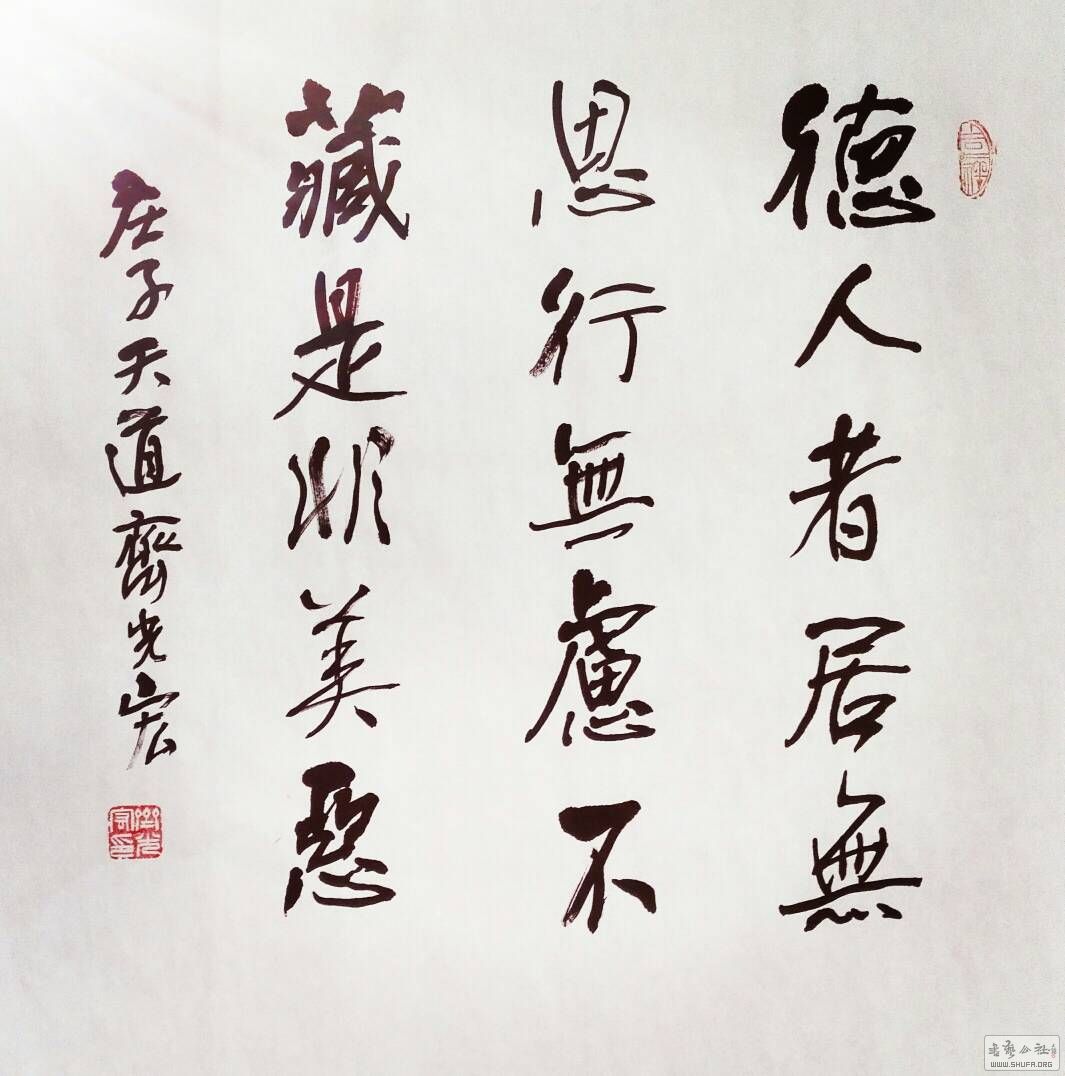 吉祥
德人者居無
思行無慮不
藏是非美惡
庄子天道齋光宏
書藝公社
WWW.SHUFA.ORG